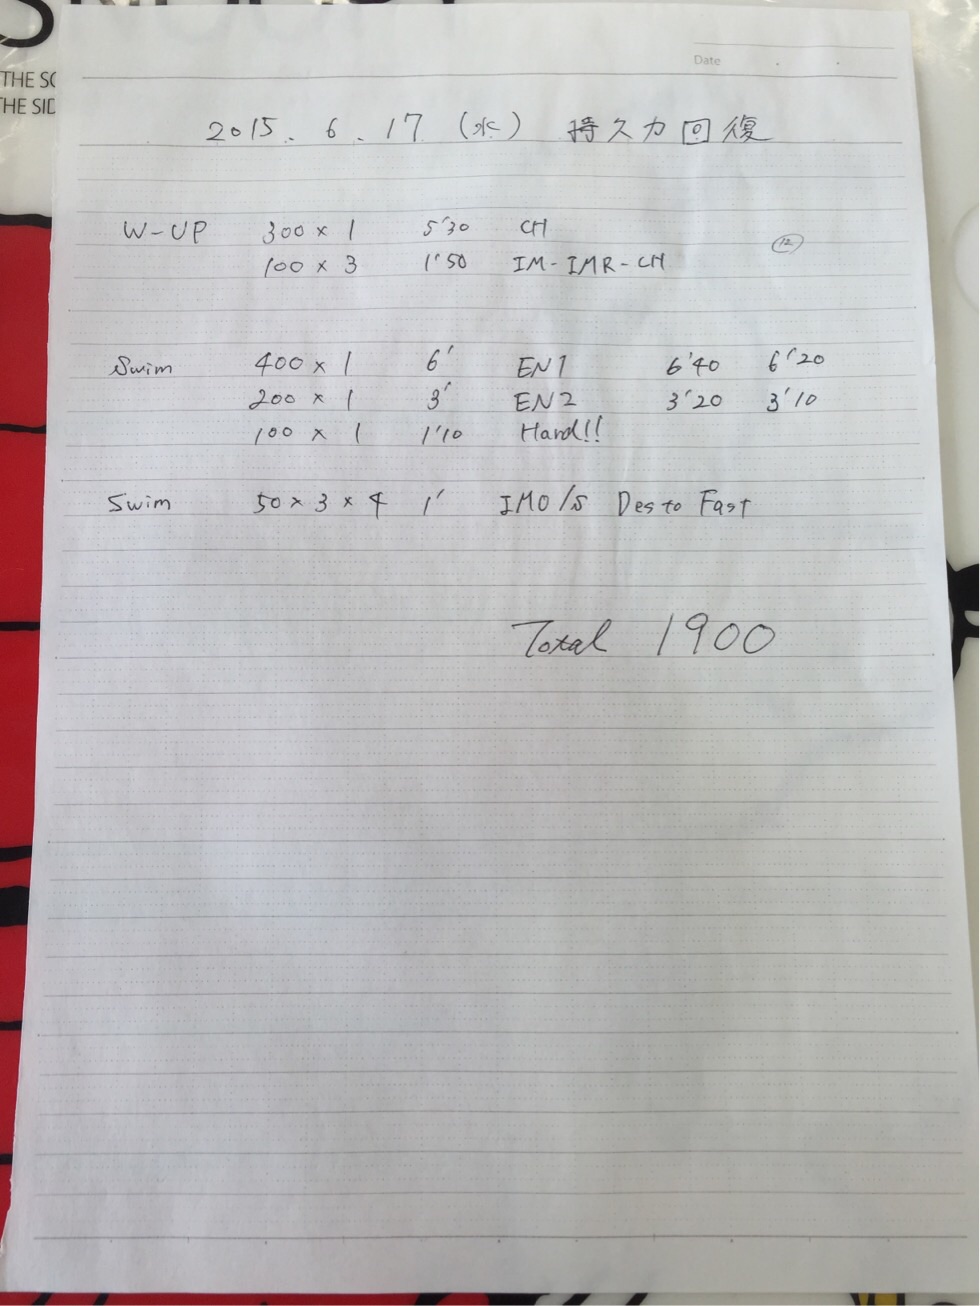 THE SC
THE SID
Date
2015. 6. 17 (水) 持久力回復
W-UP 300 × 1 5'30 CH
⑫
100 × 3 1'50 IM-IMR-CH
Swim 400 × 1 6' EN1 6'40 6'20
200 × 1 3' EN2 3'20 3'10
100 × 1 1'10 Hard!!
Swim 50 × 3 × 4 1' IMO/S Des to Fast
Total 1900